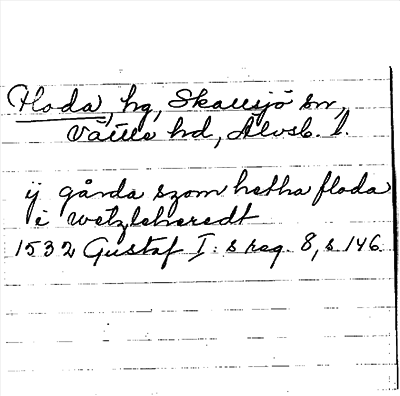 Floda, hg, Skallsjö sn,
Vättle hd, Älvsb. l.
ij gårda szom hetha floda
i wetzleheredt
1532 Gustaf I:s reg. 8, s 146.